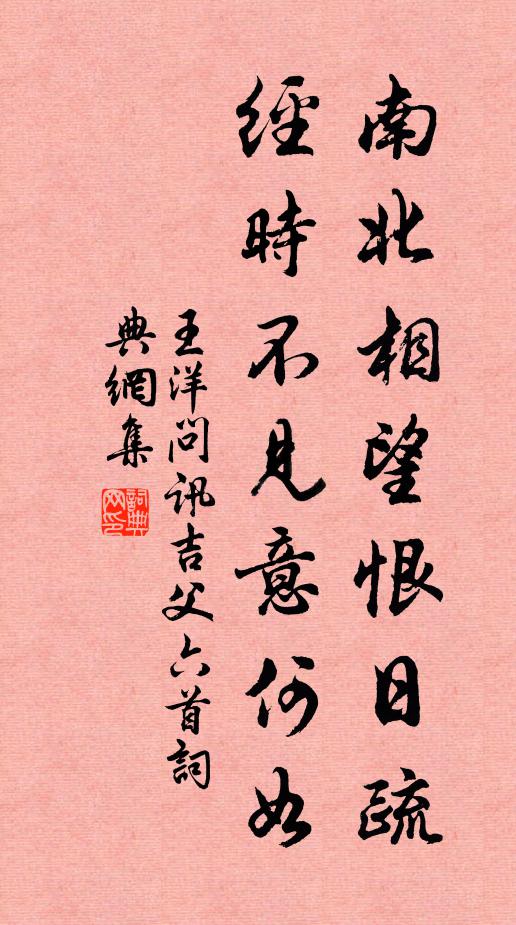 南北相望恨日疏
經時不見意何如
王洋問訊吉父六首詞
典網集
詞典
网印